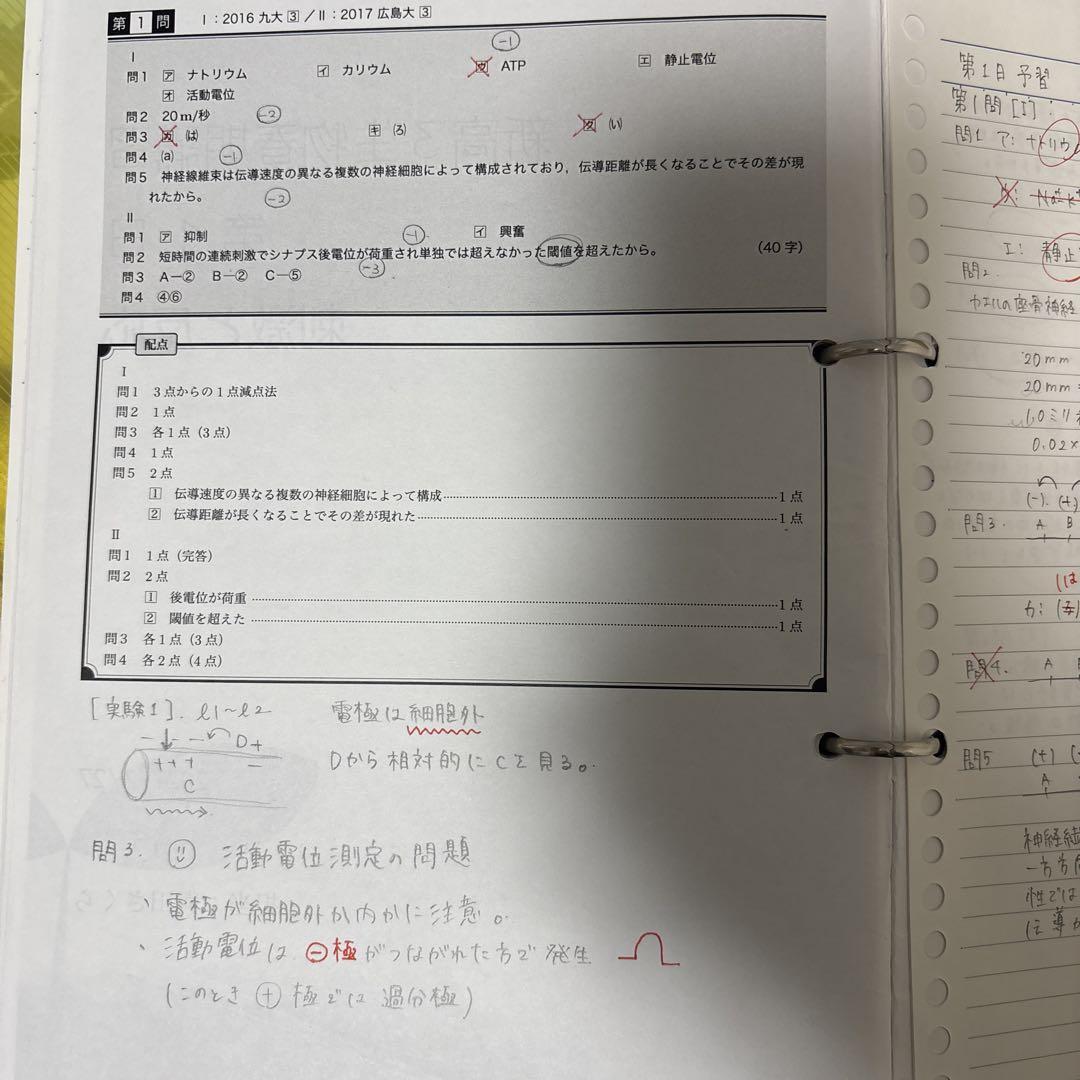 第1問 Ⅰ：2016 九大 3 ／Ⅱ：2017 広島大 3
Ⅰ
-1
問1 ア ナトリウム イ カリウム ウ ATP エ 静止電位
オ 活動電位
問2 20m/秒 -2
問3 カ (は) キ (ろ) ク (い)
問4 (a) -1
問5 神経線維束は伝導速度の異なる複数の神経細胞によって構成されており，伝導距離が長くなることでその差が現
れたから。 -2
Ⅱ
問1 ア 抑制 -1 イ 興奮
問2 短時間の連続刺激でシナプス後電位が荷重され単独では超えなかった閾値を超えたから。 (40字)
問3 A―② B―② C―⑤ -3
問4 ④⑥
配点
Ⅰ
問1 3点からの1点減点法
問2 1点
問3 各1点（3点）
問4 1点
問5 2点
1 伝導速度の異なる複数の神経細胞によって構成 1点
2 伝導距離が長くなることでその差が現れた 1点
Ⅱ
問1 1点（完答）
問2 2点
1 後電位が荷重 1点
2 閾値を超えた 1点
問3 各1点（3点）
問4 各2点（4点）
[実験1]. l1～l2 電極は細胞外
- - - D +
+ + + -
C
Dから相対的にCを見る。
問3. 活動電位測定の問題
、電極が細胞外か内かに注意。
、活動電位は ⊖極がつながれた方で発生
(このとき ⊕ 極では 過分極)
第1日 予習
第1問 [I].
問1 ア: ナトリウ
ウ: Na+K+
エ: 静止
問2.
カエルの座骨神経
20mm
20mm
1.0ミリ
0.02×
(-) (+)
問3. A B
(は
カ: (ろ)
問4. A
問5 (+)
A
神経結
一方
性では
伝導が